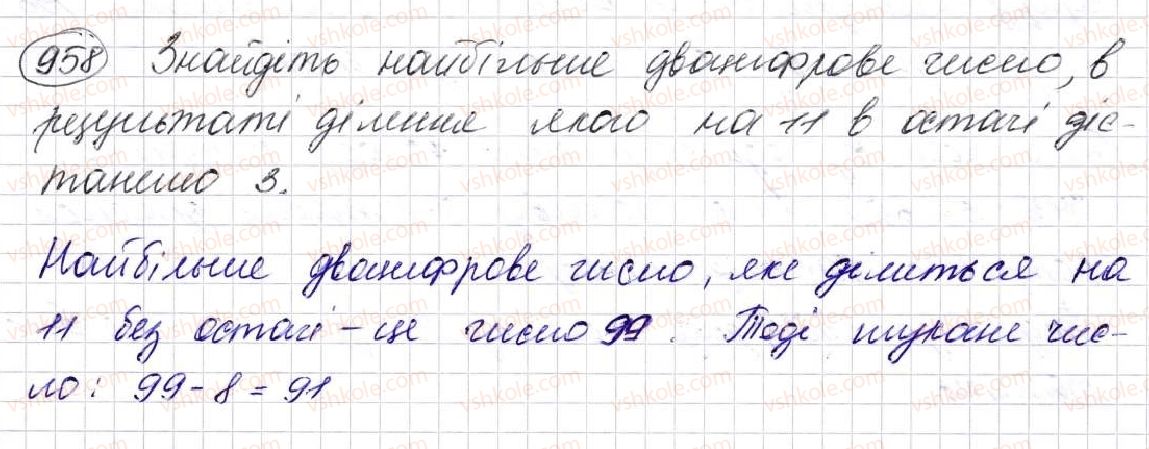 958 Знайдіть найбільше двоцифрове число, в
результаті ділення якого на 11 в остачі діс-
танемо 3.
Найбільше двоцифрове число, яке ділиться на
11 без остачі - це число 99. Тоді шукане чис-
ло: 99 - 8 = 91